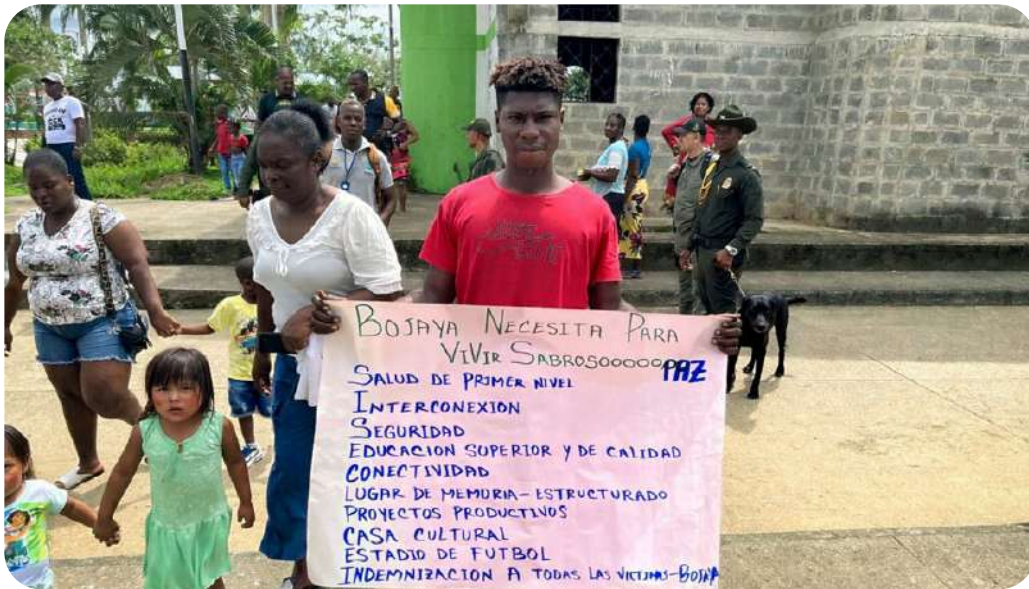 BOJAYA NECESITA PARA
VIVIR SABROSOOOOOOO PAZ
SALUD DE PRIMER NIVEL
INTERCONEXION
SEGURIDAD
EDUCACION SUPERIOR Y DE CALIDAD
CONECTIVIDAD
LUGAR DE MEMORIA-ESTRUCTURADO
PROYECTOS PRODUCTIVOS
CASA CULTURAL
ESTADIO DE FUTBOL
INDEMNIZACION A TODAS LAS VICTIMAS-BOJAYA